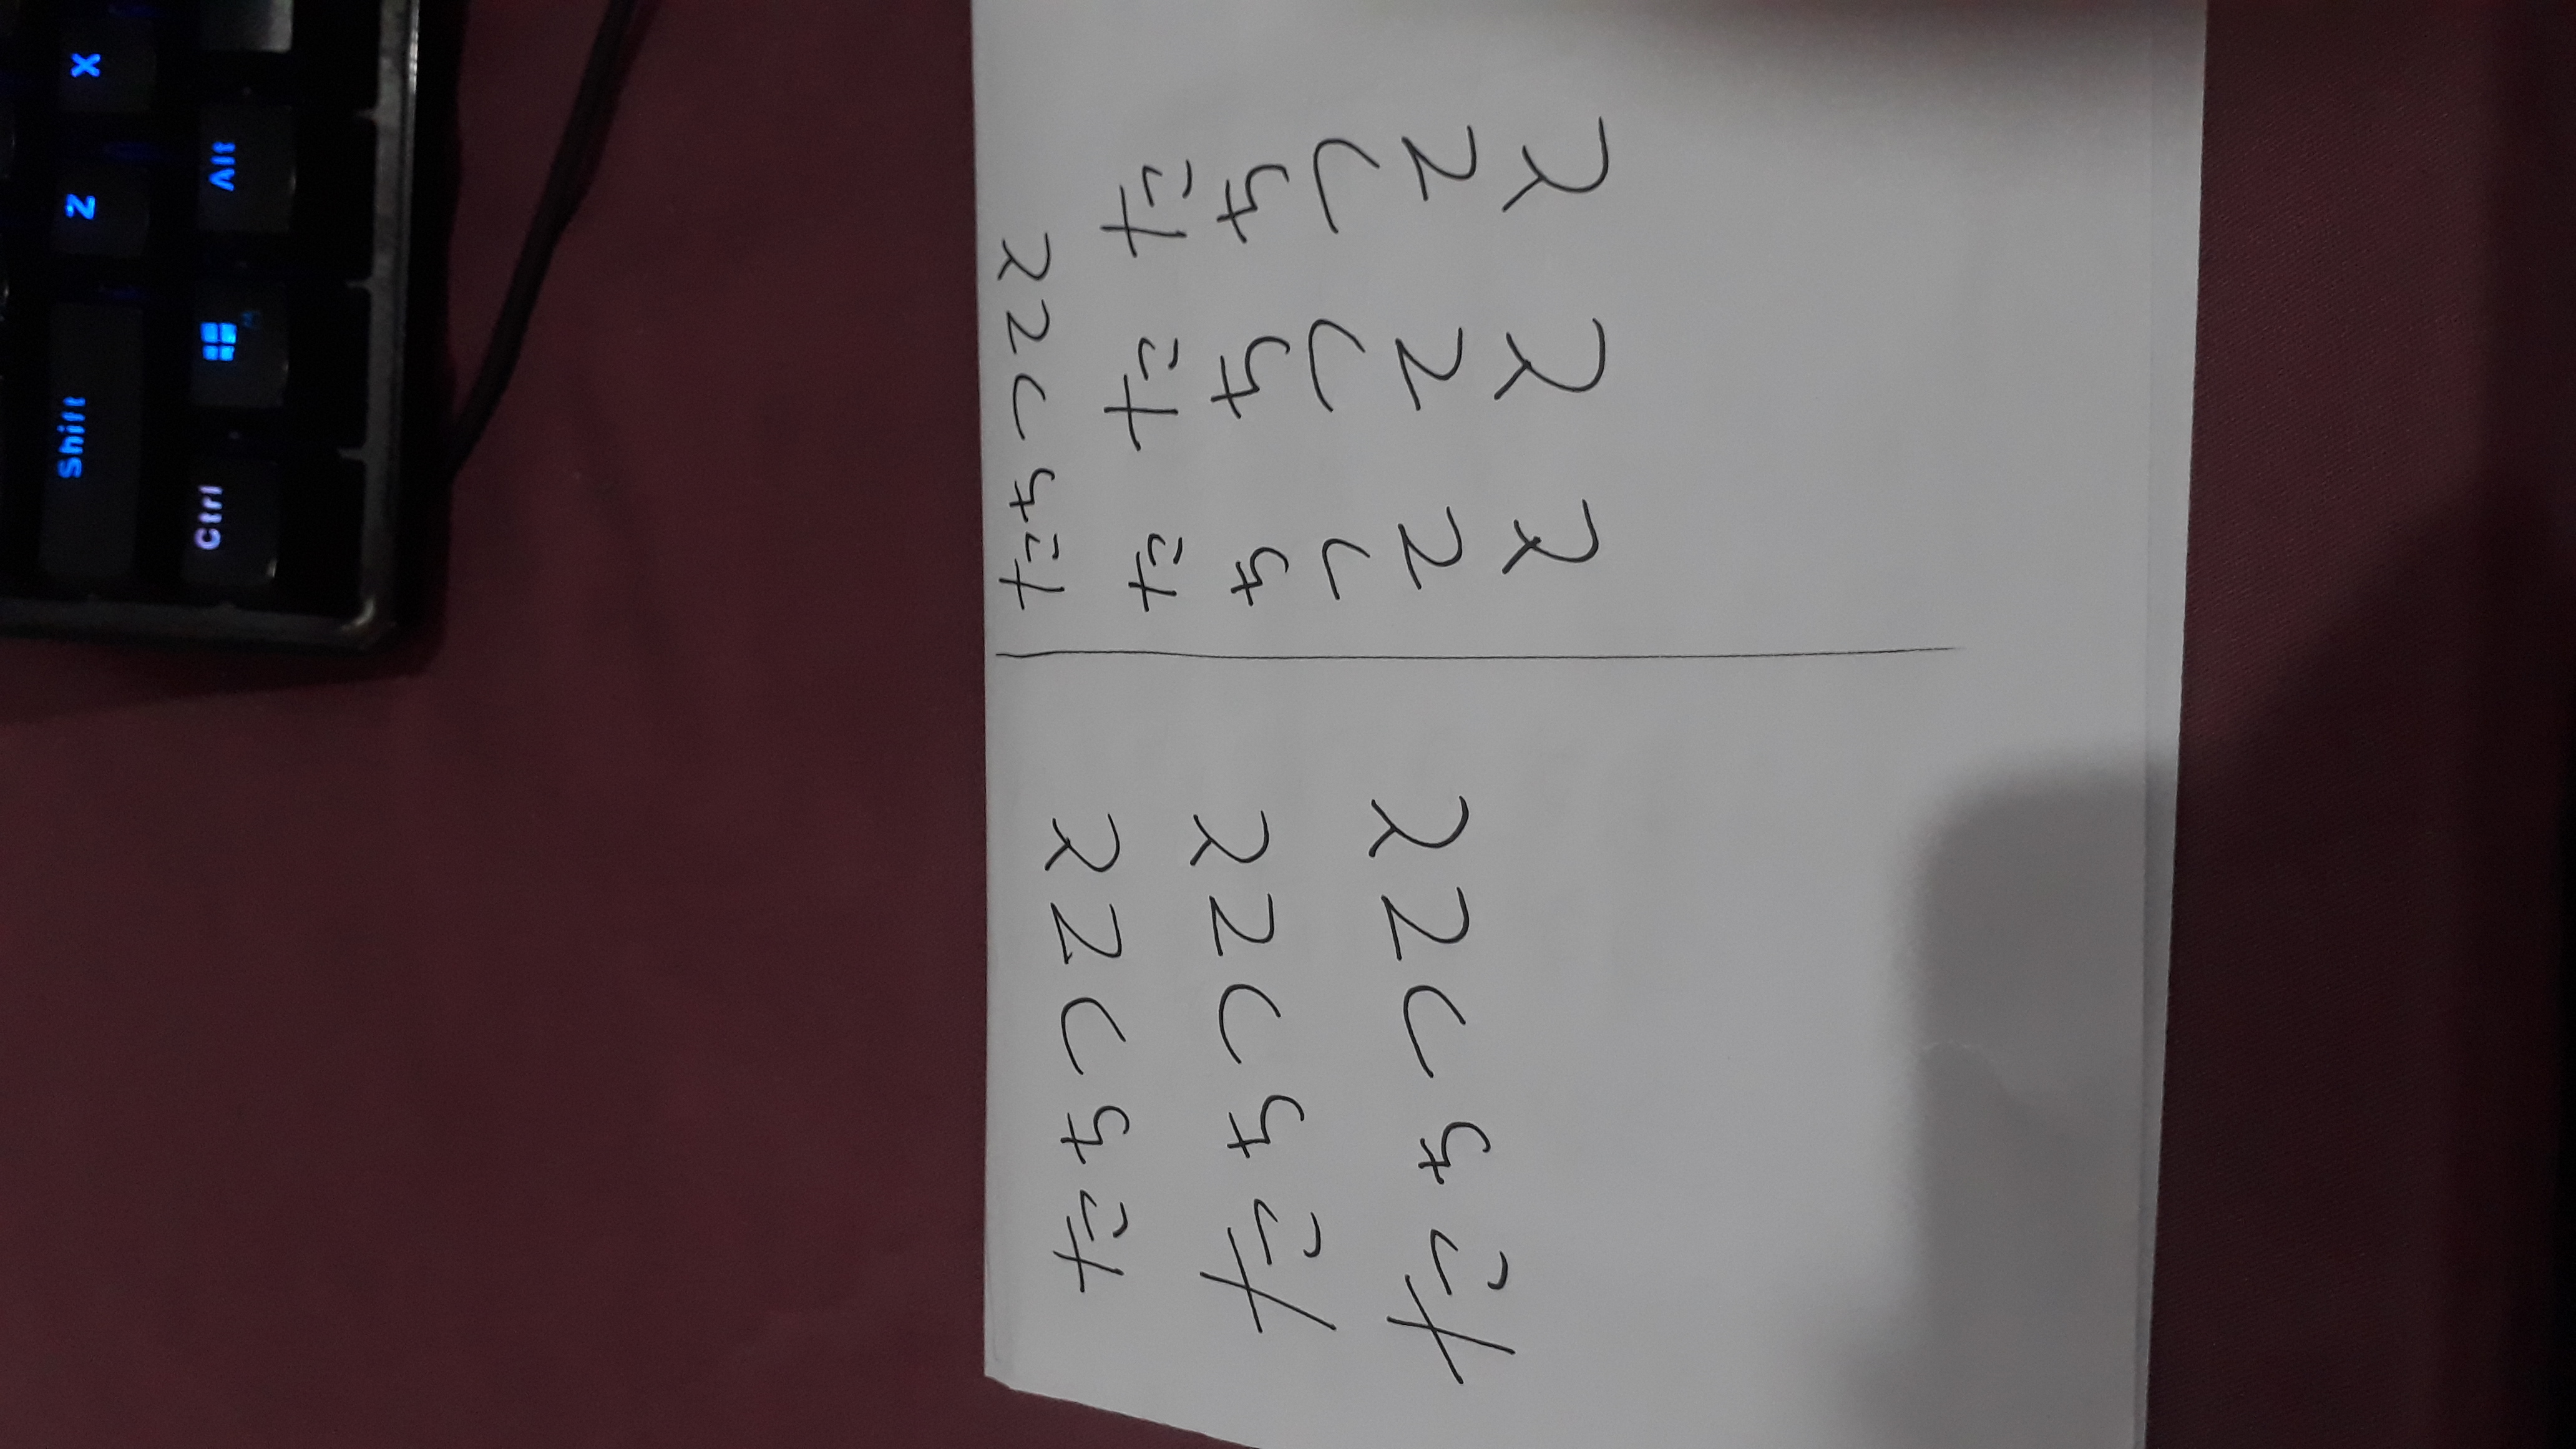 Shift Z X
Ctrl Alt
たちつてと
たちつてと
たちつてと
たちつてと
た た た
ち ち ち
つ つ つ
て て て
と と と